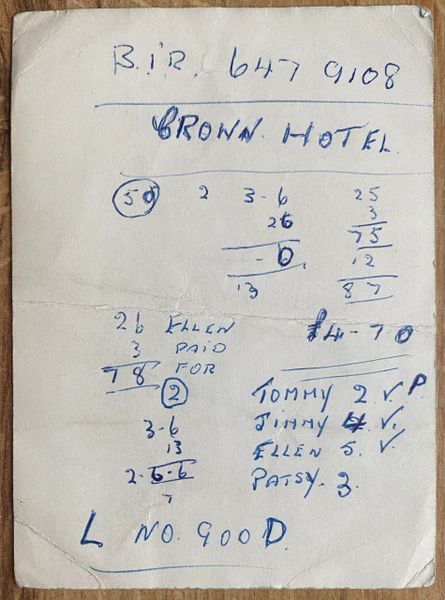 B.I.R. 647 9108
CROWN HOTEL
50 2 3-6 25
26 3
75
- 0 12
13 87
26 ELLEN £4-70
3 PAID
78 FOR
2
TOMMY 2 ✓ P
3-6 JIMMY 4 ✓
13 ELLEN 5 ✓
2. 6-6 PATSY. 3
7
L NO. 900D